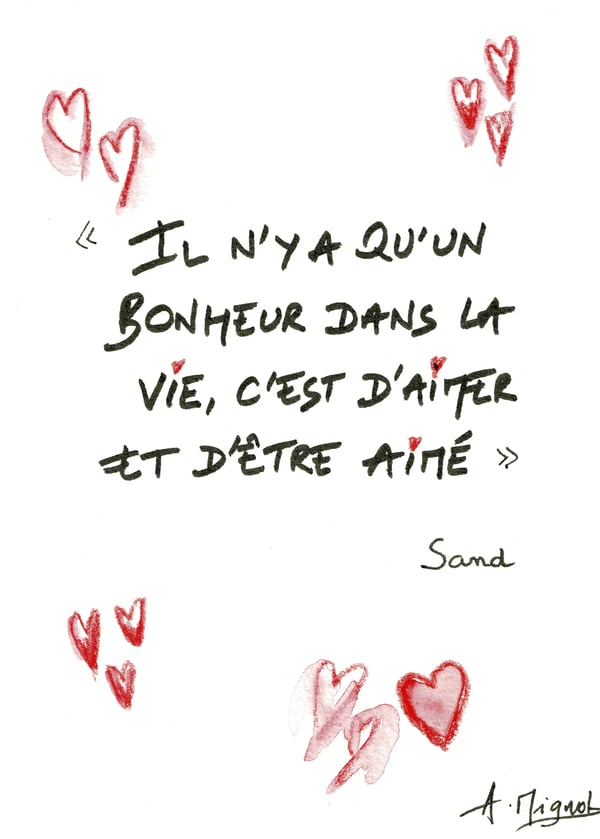 « IL N'Y A QU'UN
BONHEUR DANS LA
ViE, C'EST D'AiMER
ET D'ÊTRE AiMÉ »
Sand
A. Mignot